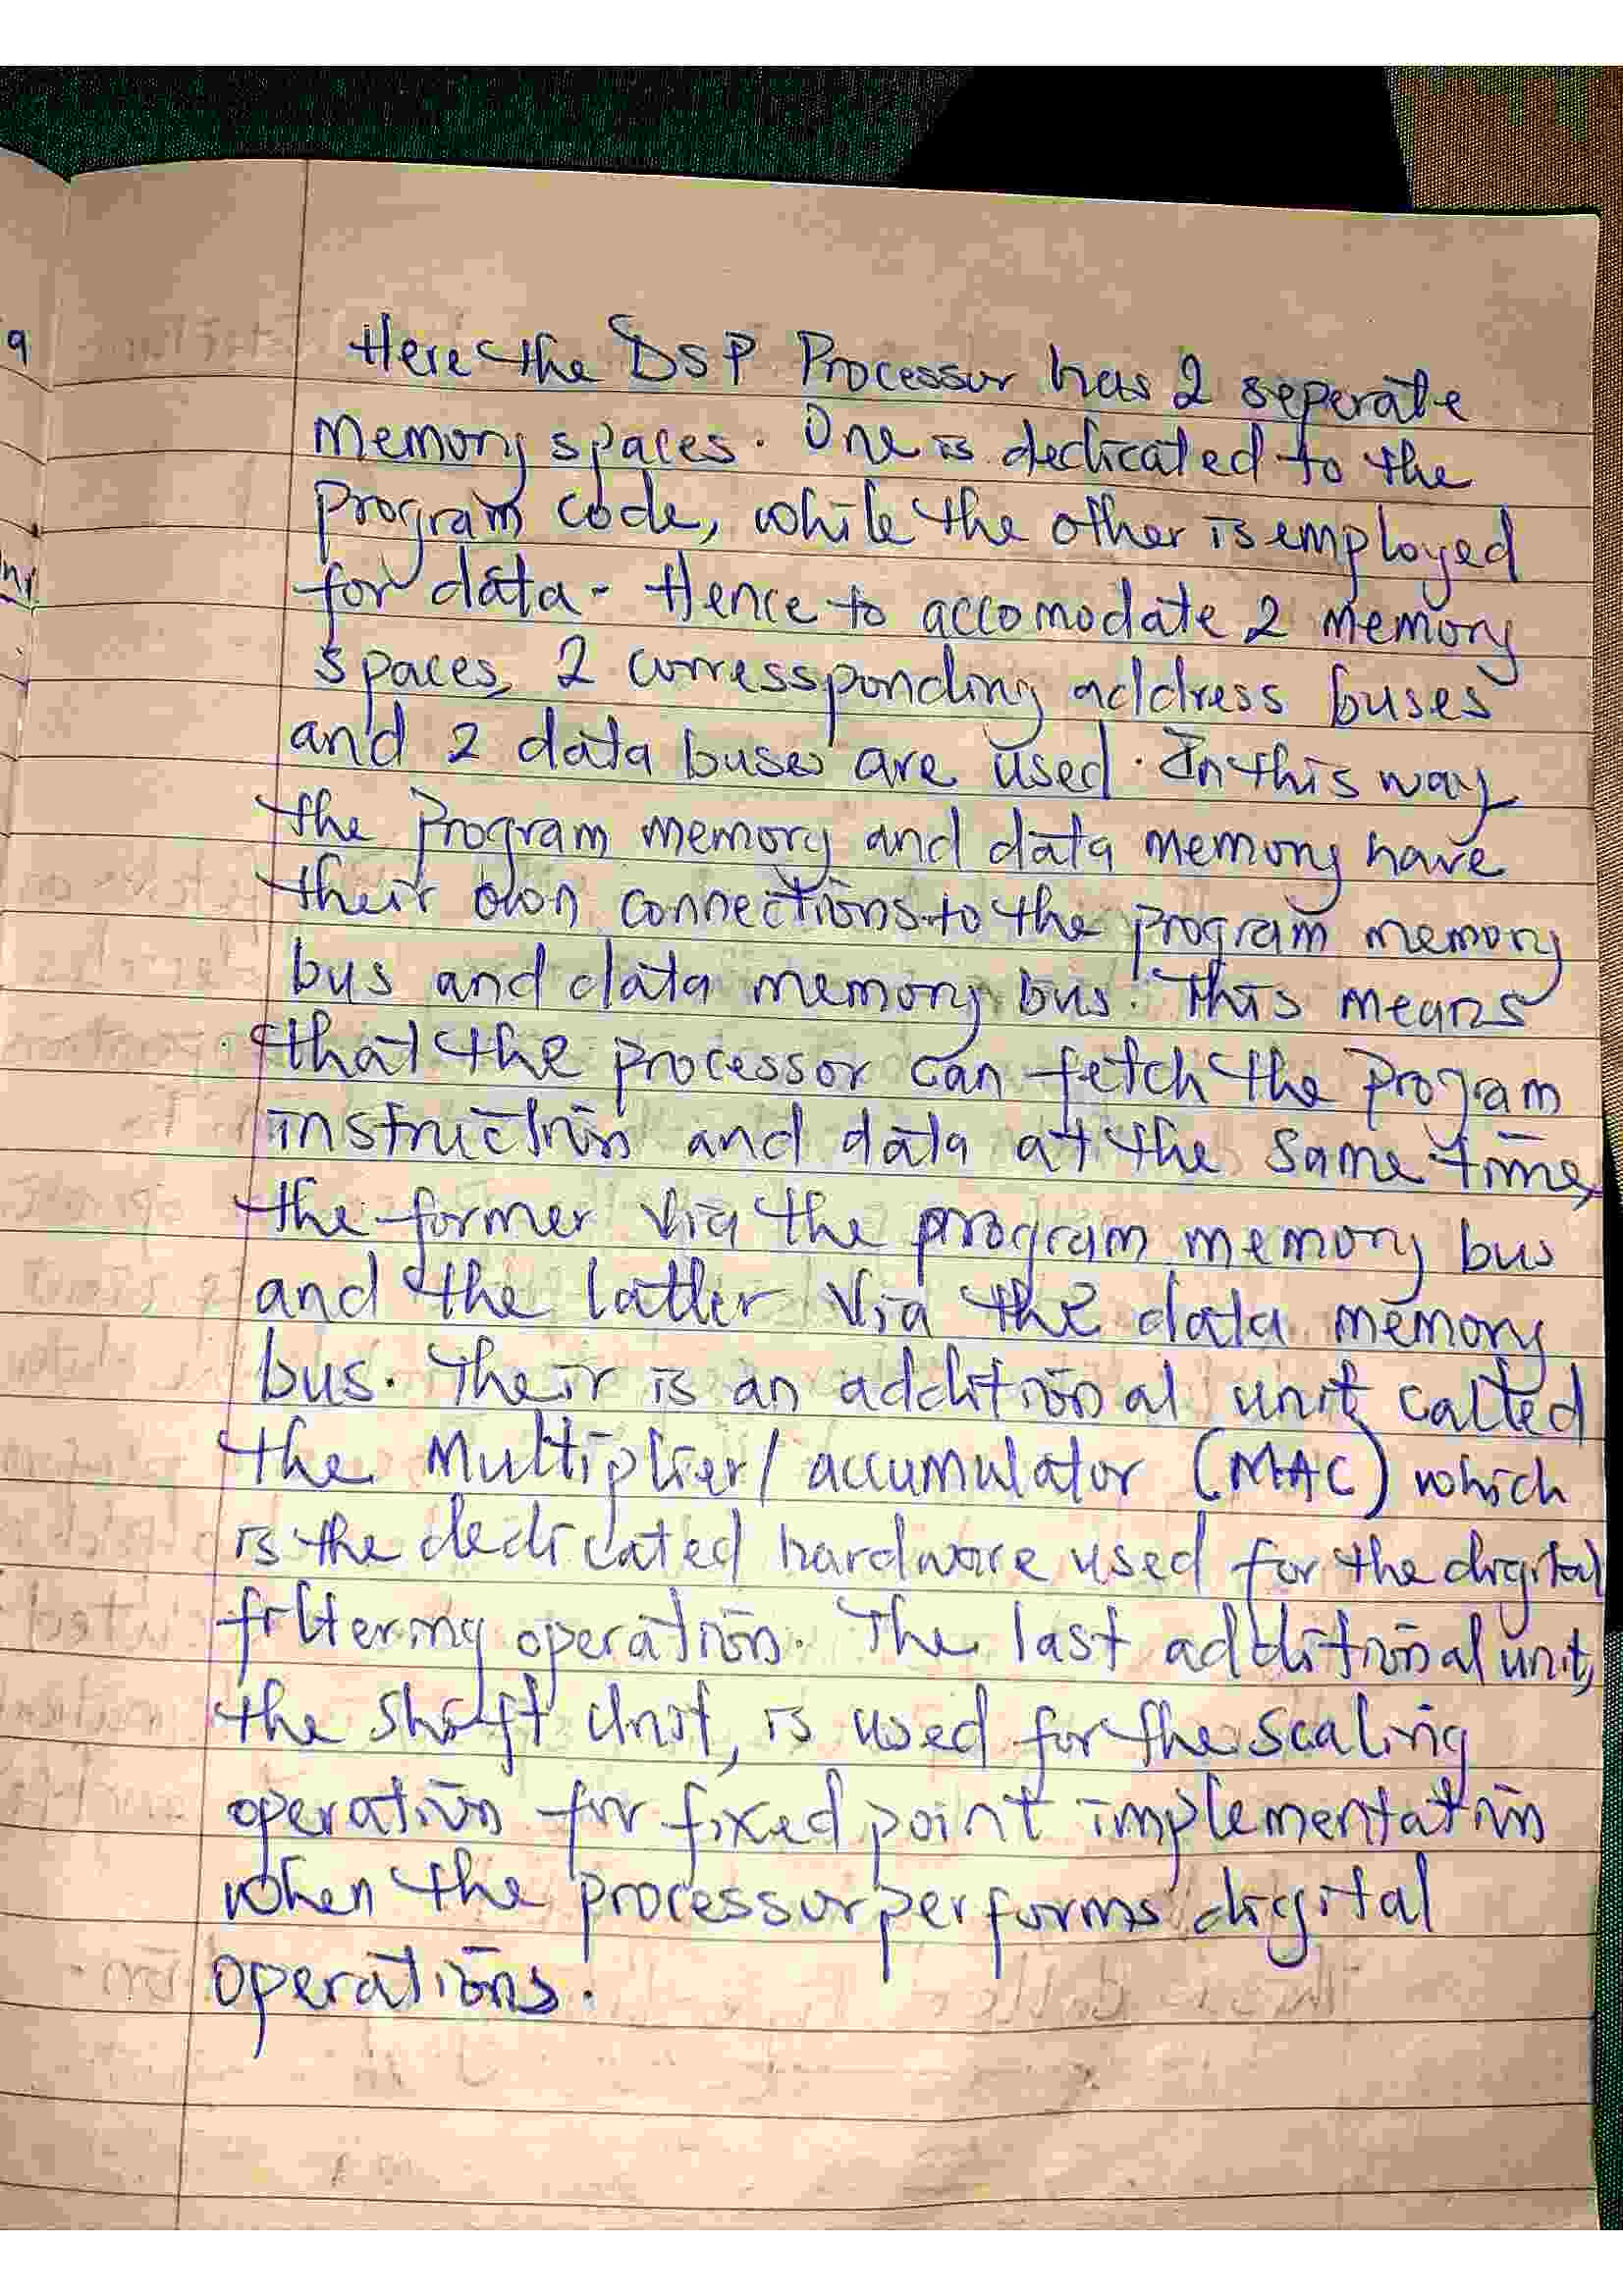 Here the DSP Processor has 2 seperate
memory spaces. One is dedicated to the
program code, while the other is employed
for data. Hence to accomodate 2 memory
spaces, 2 corressponding address buses
and 2 data buses are used. In this way
the program memory and data memory have
their own connections to the program memory
bus and data memory bus. This means
that the processor can fetch the progam
instruction and data at the same time,
the former via the program memory bus
and the latter via the data memory
bus. Their is an additional unit called
the Multiplier/accumulator (MAC) which
is the dedicated hardware used for the digital
filtering operation. The last additional unit,
the shift unit, is used for the scaling
operation for fixed point implementation
when the processor performs digital
operations.